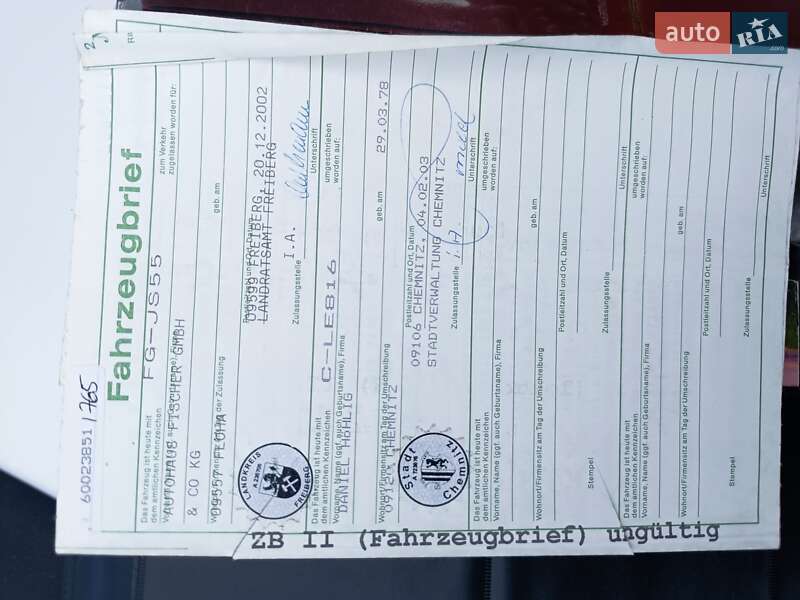 60023851/765
Fahrzeugbrief
Das Fahrzeug ist heute mit
dem amtlichen Kennzeichen
FG-JS55
zum Verkehr
zugelassen worden für:
AUTOHAUS FISCHER GMBH
& CO KG
geb. am
09557 FLÖHA
Postleitzahl und Ort, Datum
09599 FREIBERG, 20.12.2002
LANDRATSAMT FREIBERG
Zulassungsstelle
I.A.
Unterschrift
LANDKREIS
FREIBERG
Das Fahrzeug ist heute mit
dem amtlichen Kennzeichen
C-LE816
umgeschrieben
worden auf:
Vorname, Name (ggf. auch Geburtsname), Firma
DANIEL
geb. am
29.03.78
Wohnort/Firmensitz am Tag der Umschreibung
CHEMNITZ
Postleitzahl und Ort, Datum
09106 CHEMNITZ, 04.02.03
STADTVERWALTUNG CHEMNITZ
Zulassungsstelle
i.A.
Unterschrift
Stadt
Chemnitz
Das Fahrzeug ist heute mit
dem amtlichen Kennzeichen
umgeschrieben
worden auf:
Vorname, Name (ggf. auch Geburtsname), Firma
geb. am
Wohnort/Firmensitz am Tag der Umschreibung
Postleitzahl und Ort, Datum
Stempel
Zulassungsstelle
Unterschrift
Das Fahrzeug ist heute mit
dem amtlichen Kennzeichen
umgeschrieben
worden auf:
Vorname, Name (ggf. auch Geburtsname), Firma
geb. am
Wohnort/Firmensitz am Tag der Umschreibung
Postleitzahl und Ort, Datum
Stempel
Zulassungsstelle
Unterschrift
ZB II (Fahrzeugbrief) ungültig
auto RIA.com